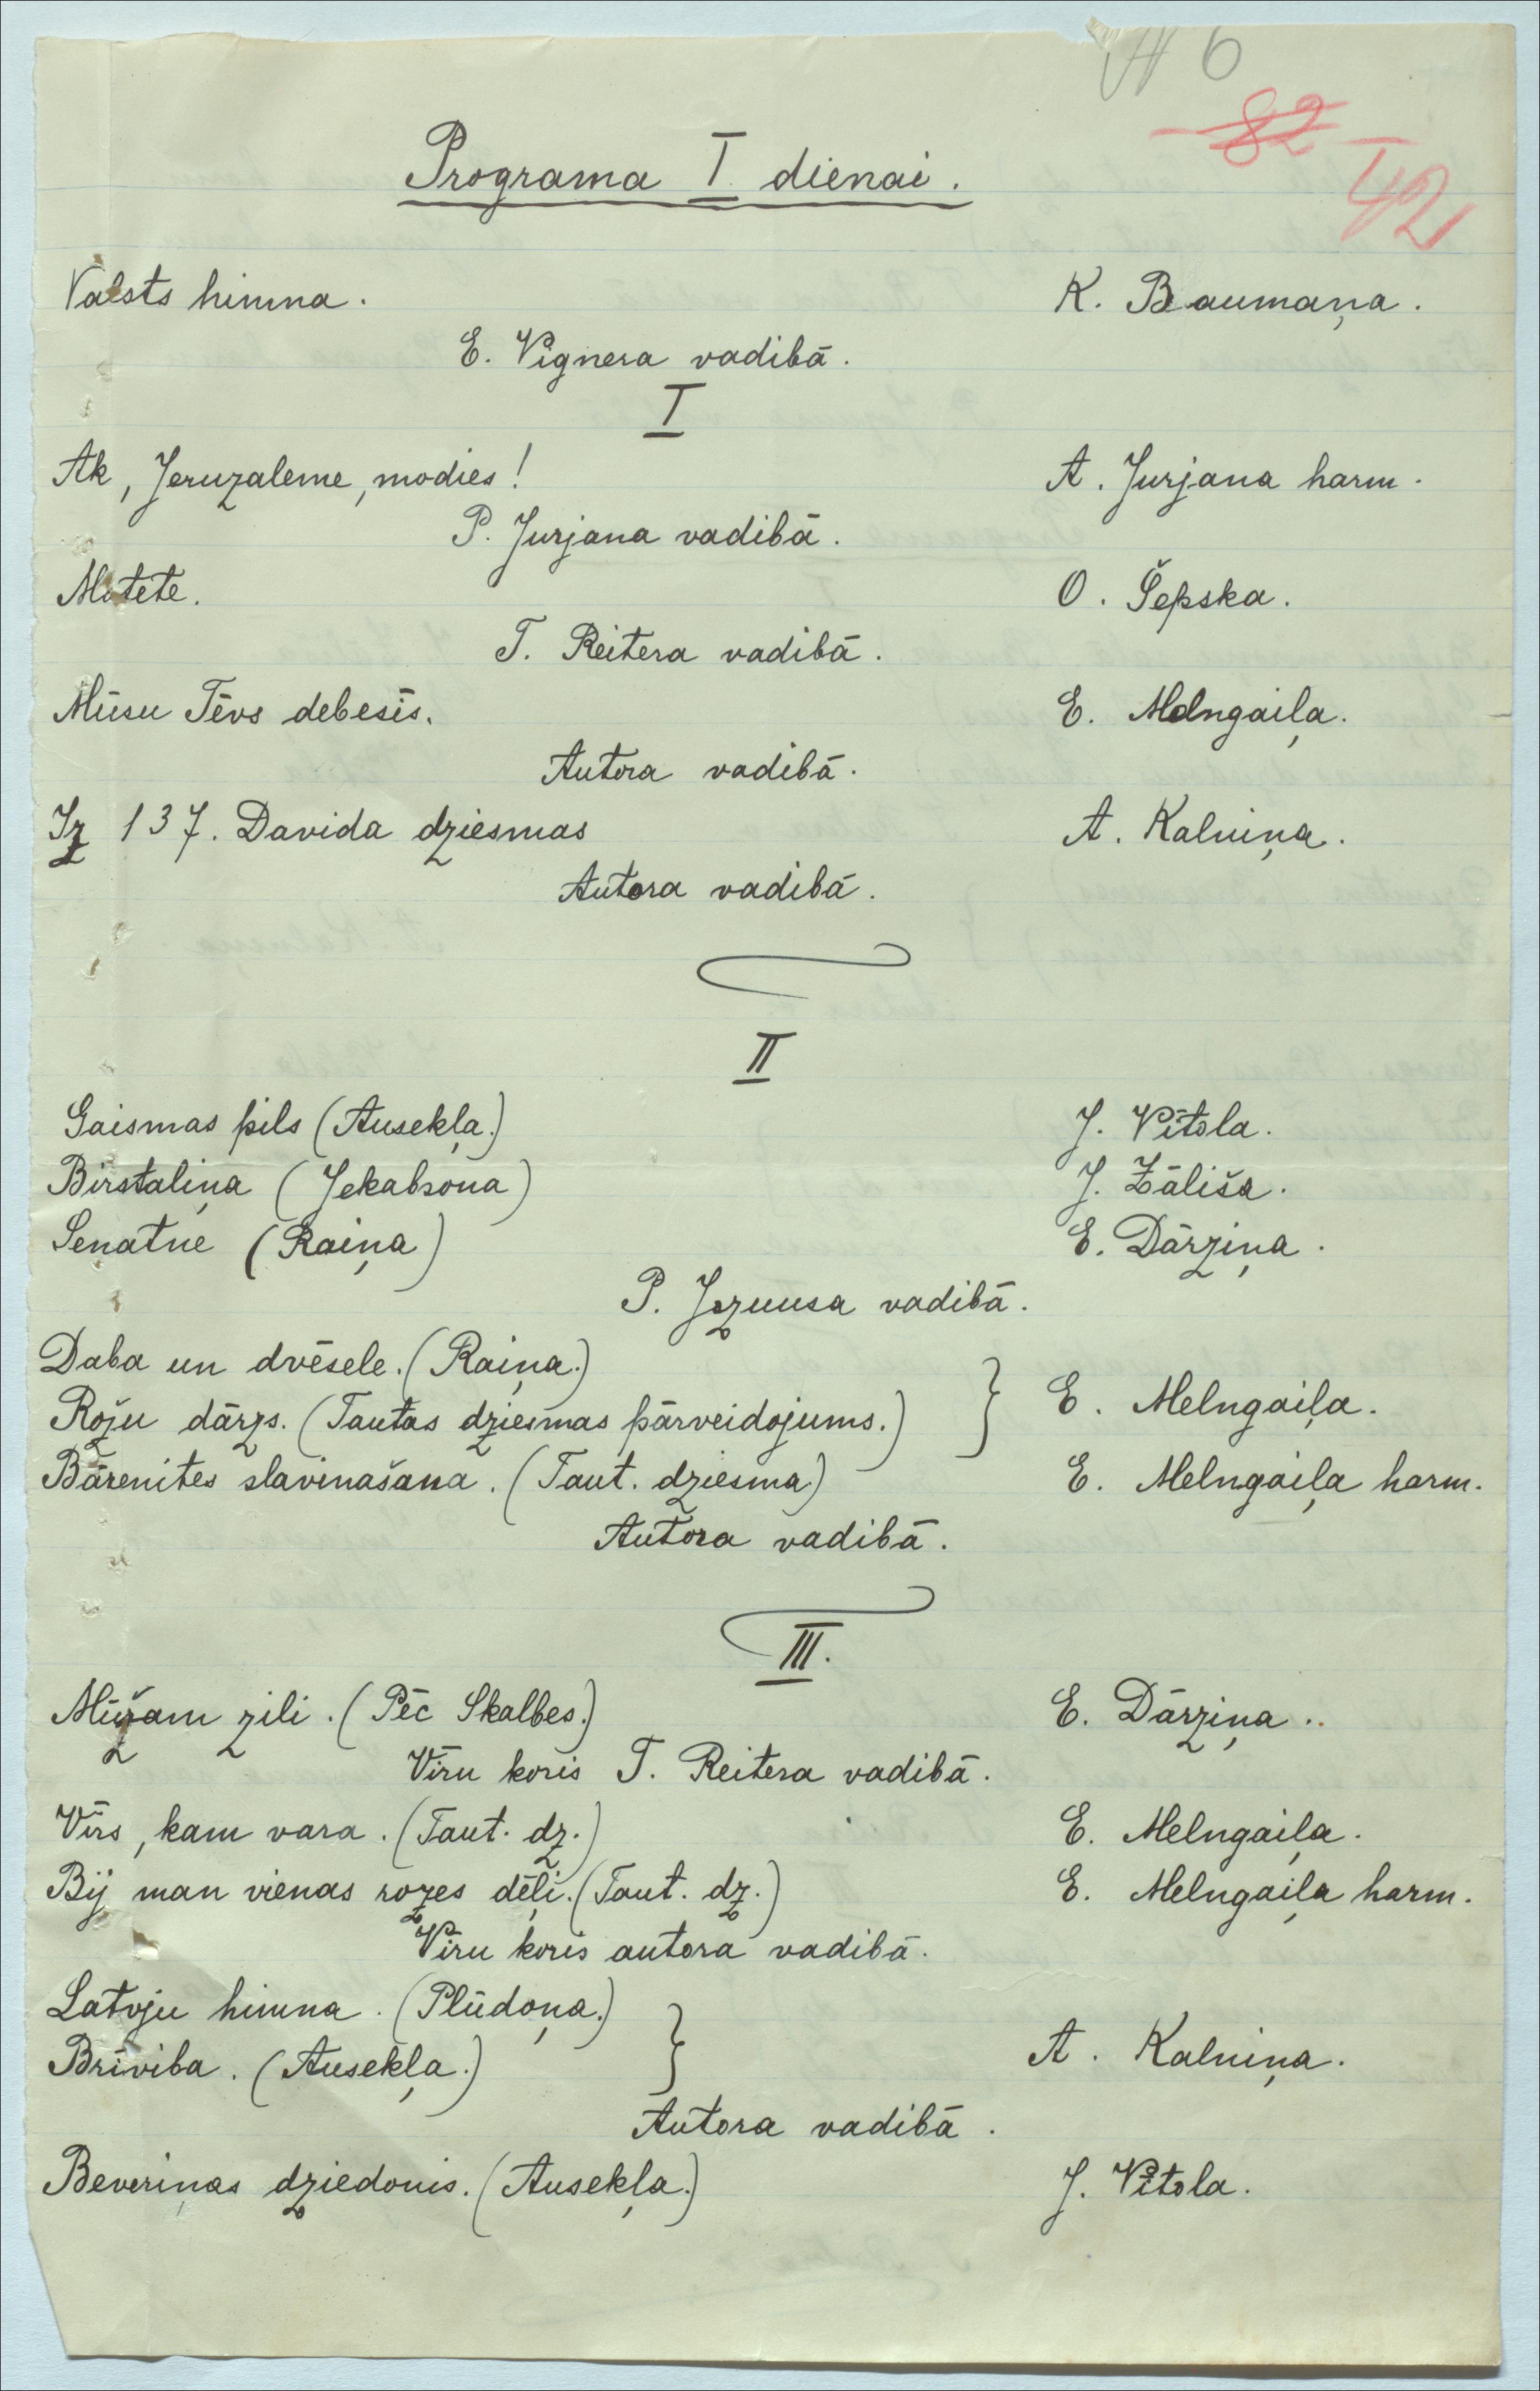 № 6
82
I 42
Programa I dienai.
Valsts himna. K. Baumaņa.
E. Vignera vadibā.
I
Ak, Jeruzaleme, modies! A. Jurjana harm.
P. Jurjana vadibā.
Motete. O. Šepska.
T. Reitera vadibā.
Mūsu Tēvs debesīs. E. Melngaiļa.
Autora vadibā.
Iz 137. Davida dziesmas A. Kalniņa.
Autora vadibā.
II
Gaismas pils (Ausekļa.) J. Vītola.
Birstaliņa (Jekabsona) J. Zāliša.
Senatne (Raiņa) E. Dārziņa.
P. Jozuusa vadibā.
Daba un dvēsele. (Raiņa.)
Rožu dārzs. (Tautas dziesmas pārveidojums.) } E. Melngaiļa.
Bārenites slavinašana. (Taut. dziesma.) E. Melngaiļa harm.
Autora vadibā.
III.
Mūžam zili. (Pēc Skalbes.) E. Dārziņa..
Vīru koris T. Reitera vadibā.
Vīrs, kam vara. (Taut. dz.) E. Melngaiļa.
Bij man vienas rozes dēļi. (Taut. dz.) E. Melngaiļa harm.
Vīru koris autora vadibā.
Latvju himna. (Plūdoņa.)
Brīviba. (Ausekļa.) } A. Kalniņa.
Autora vadibā.
Beveriņas dziedonis. (Ausekļa.) J. Vītola.